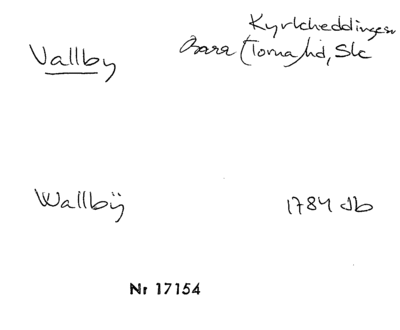 Kyrkheddinge sn
Vallby Bara (Torna) hd, Sk
Wallbÿ 1784 Jb
Nr 17154